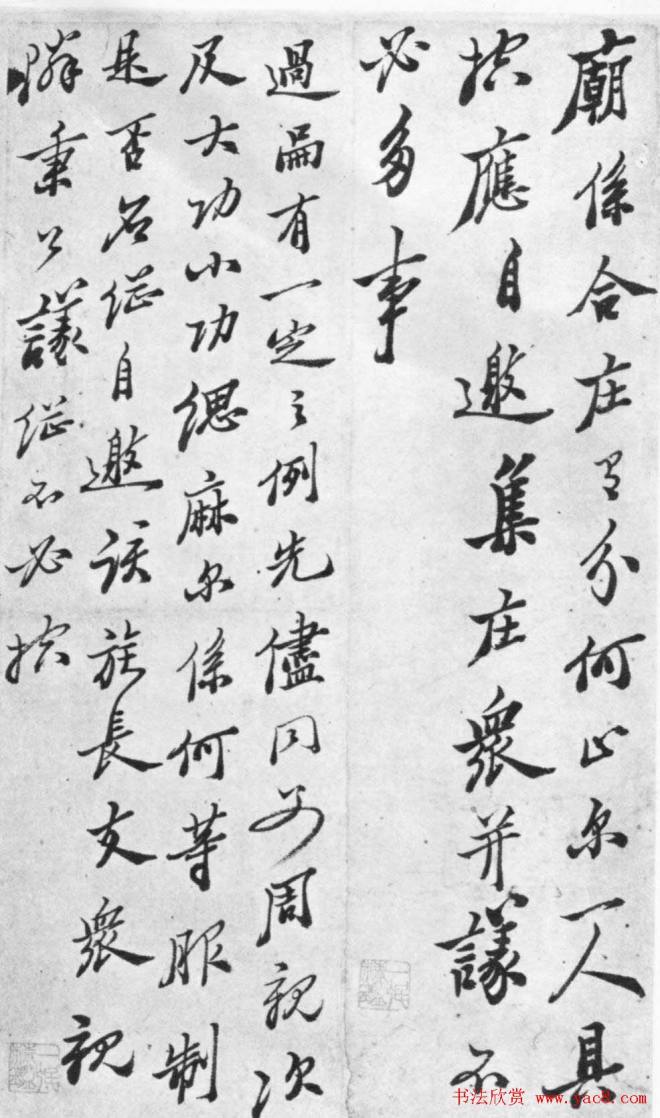 廟係合庄有分何止尔一人具
控應自邀集庄衆并議不
必多事
過繼有一定之例先儘同父周親次
及大功小功緦麻尔係何等服制
是否名継自邀該族長支衆親
隣秉公議継不必控
书法欣赏 www.yac8.com